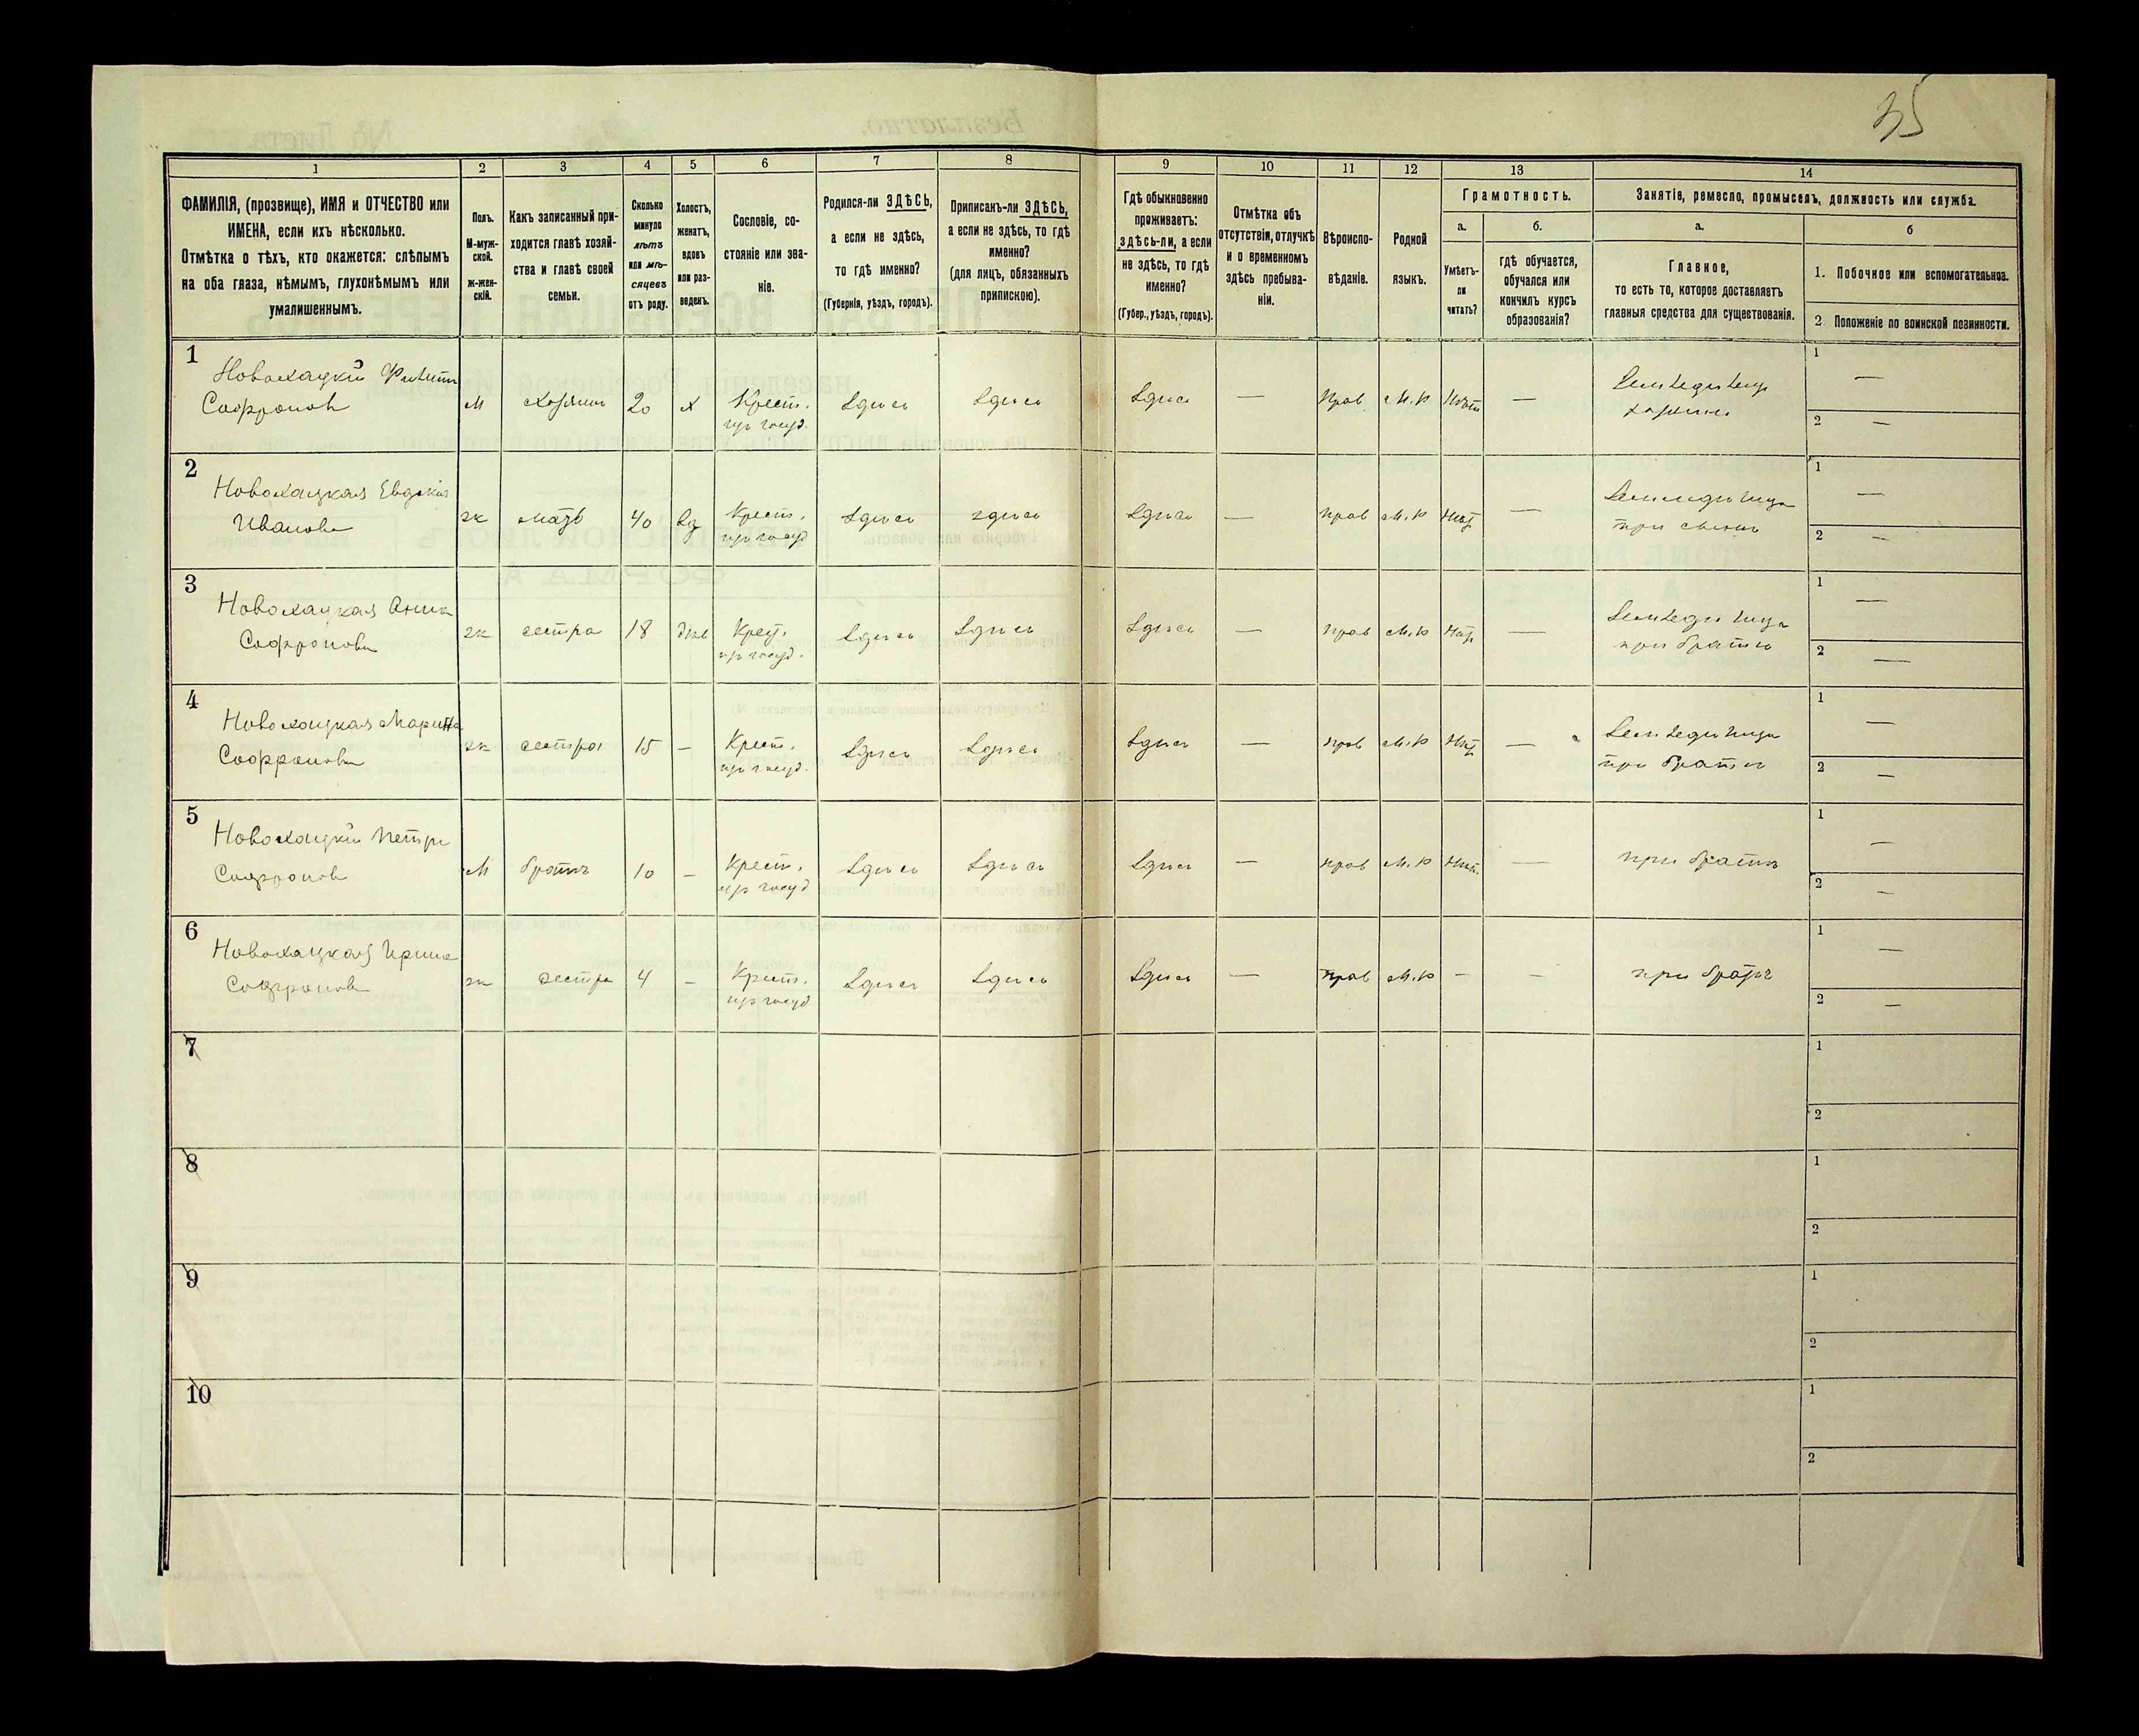 35
1
2
3
4
5
6
7
8
9
10
11
12
13
14
ФАМИЛІЯ, (прозвище), ИМЯ и ОТЧЕСТВО или
ИМЕНА, если ихъ нѣсколько.
Отмѣтка о тѣхъ, кто окажется: слѣпымъ
на оба глаза, нѣмымъ, глухонѣмымъ или
умалишеннымъ.
Полъ.
М-муж-
ской.
Ж-жен-
скій.
Какъ записанный при-
ходится главѣ хозяй-
ства и главѣ своей
семьи.
Сколько
минуло
лѣтъ
или мѣ-
сяцевъ
отъ роду.
Холостъ,
женатъ,
вдовъ
или раз-
веденъ.
Сословіе, со-
стояніе или зва-
ніе.
Родился-ли ЗДѢСЬ,
а если не здѣсь,
то гдѣ именно?
(Губернія, уѣздъ, городъ).
Приписанъ-ли ЗДѢСЬ,
а если не здѣсь, то гдѣ
именно?
(для лицъ, обязанныхъ
припискою).
Гдѣ обыкновенно
проживаетъ:
здѣсь-ли, а если
не здѣсь, то гдѣ
именно?
(Губер., уѣздъ, городъ).
Отмѣтка объ
отсутствіи, отлучкѣ
и о временномъ
здѣсь пребыва-
ніи.
Вѣроиспо-
вѣданіе.
Родной
языкъ.
Грамотность.
а.
Умѣетъ-
ли
читать?
б.
гдѣ обучается,
обучался или
кончилъ курсъ
образованія?
Занятіе, ремесло, промыселъ, должность или служба.
а.
Главное,
то есть то, которое доставляетъ
главныя средства для существованія.
б
1. Побочное или вспомогательное.
2. Положеніе по воинской повинности.
1
Новохацкій Филипп
Софронов
м
хозяинъ
20
х
Крест.
из госуд.
Здѣсь
Здѣсь
Здѣсь
—
Прав
М.р
Нѣтъ
—
хозяинъ
1
—
2
—
2
Новохацкая Евдокія
Иванова
ж
мать
40
вд
Крест.
из госуд
Здѣсь
здѣсь
Здѣсь
—
прав
М.р
Нѣт
—
при сынѣ
1
—
2
—
3
Новохацкая Анна
Софронова
ж
сестра
18
дѣв
Крест.
из госуд.
Здѣсь
Здѣсь
Здѣсь
—
прав
М.р
Нѣт
—
при братѣ
1
—
2
—
4
Новохацкая Марина
Софронова
ж
сестра
15
—
Крест.
из госуд.
Здѣсь
Здѣсь
Здѣсь
—
прав
М.р
Нѣт
—
при братѣ
1
—
2
—
5
Новохацкій Петръ
Софронов
М
братъ
10
—
Крест.
из госуд
Здѣсь
Здѣсь
Здѣсь
—
прав
М.р
Нѣт.
—
при братѣ
1
—
2
—
6
Новохацкая Ирина
Софронов
ж
сестра
4
—
Крест.
из госуд
Здѣсь
Здѣсь
Здѣсь
—
прав
М.р
—
—
при братѣ
1
—
2
—
7
1
2
8
1
2
9
1
2
10
1
2